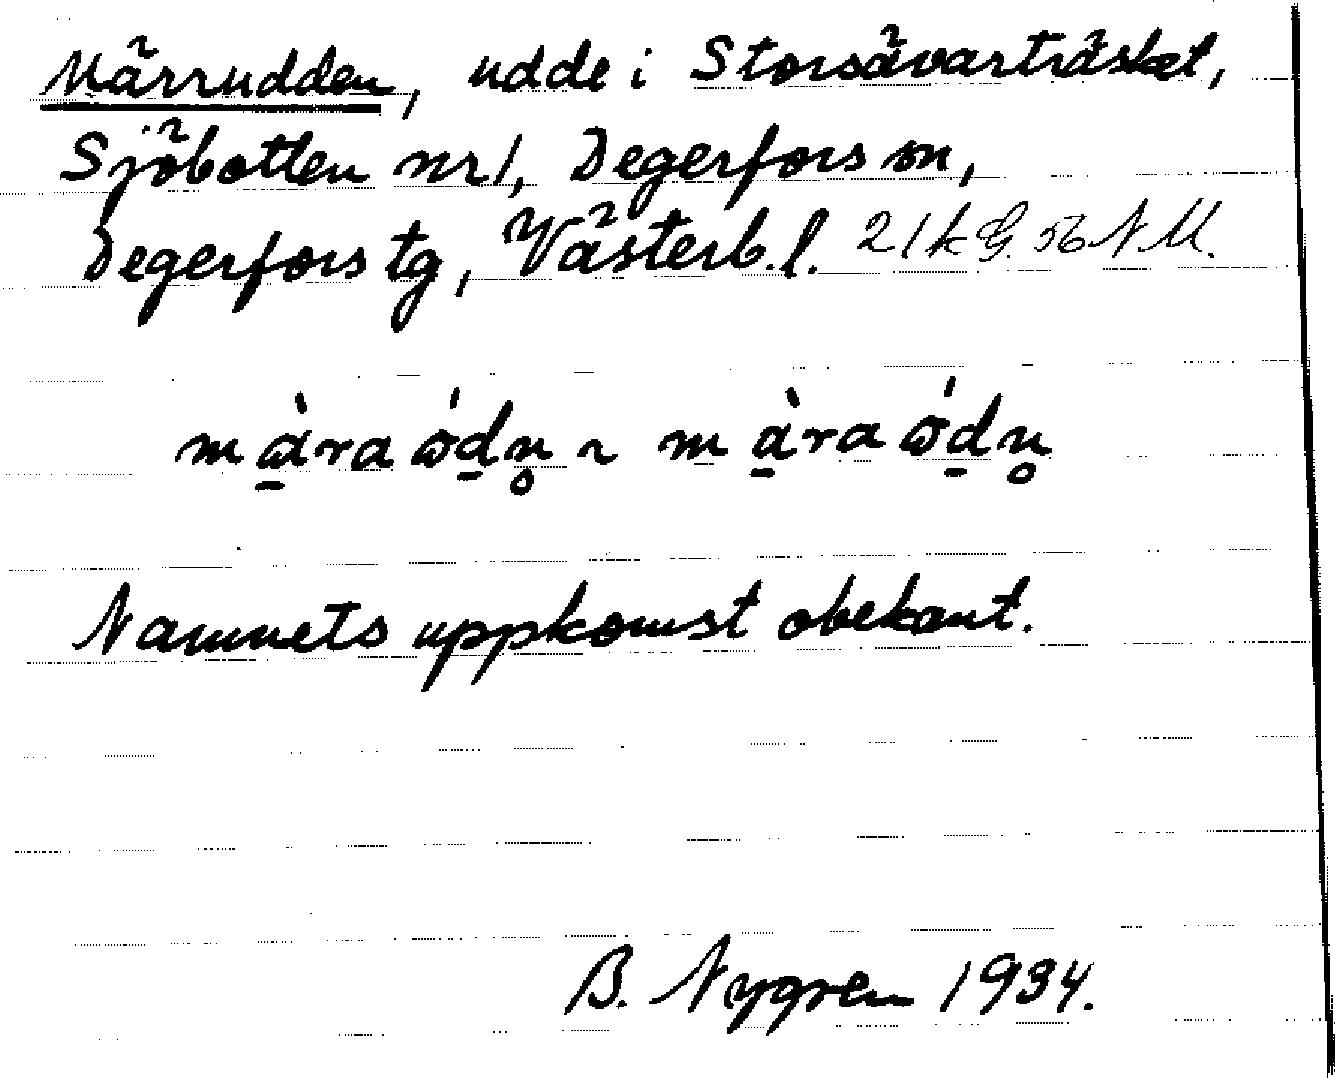 Märrudden, udde i Storsävarträsket,
Sjöbotten nr 1, Degerfors sn,
Degerfors tg, Västerb. l. 21 k G. 56 N M.
mà̱raòḏn̥ ~ mà̱raóḏn̥
Namnets uppkomst obekant.
B. Nygren 1934.